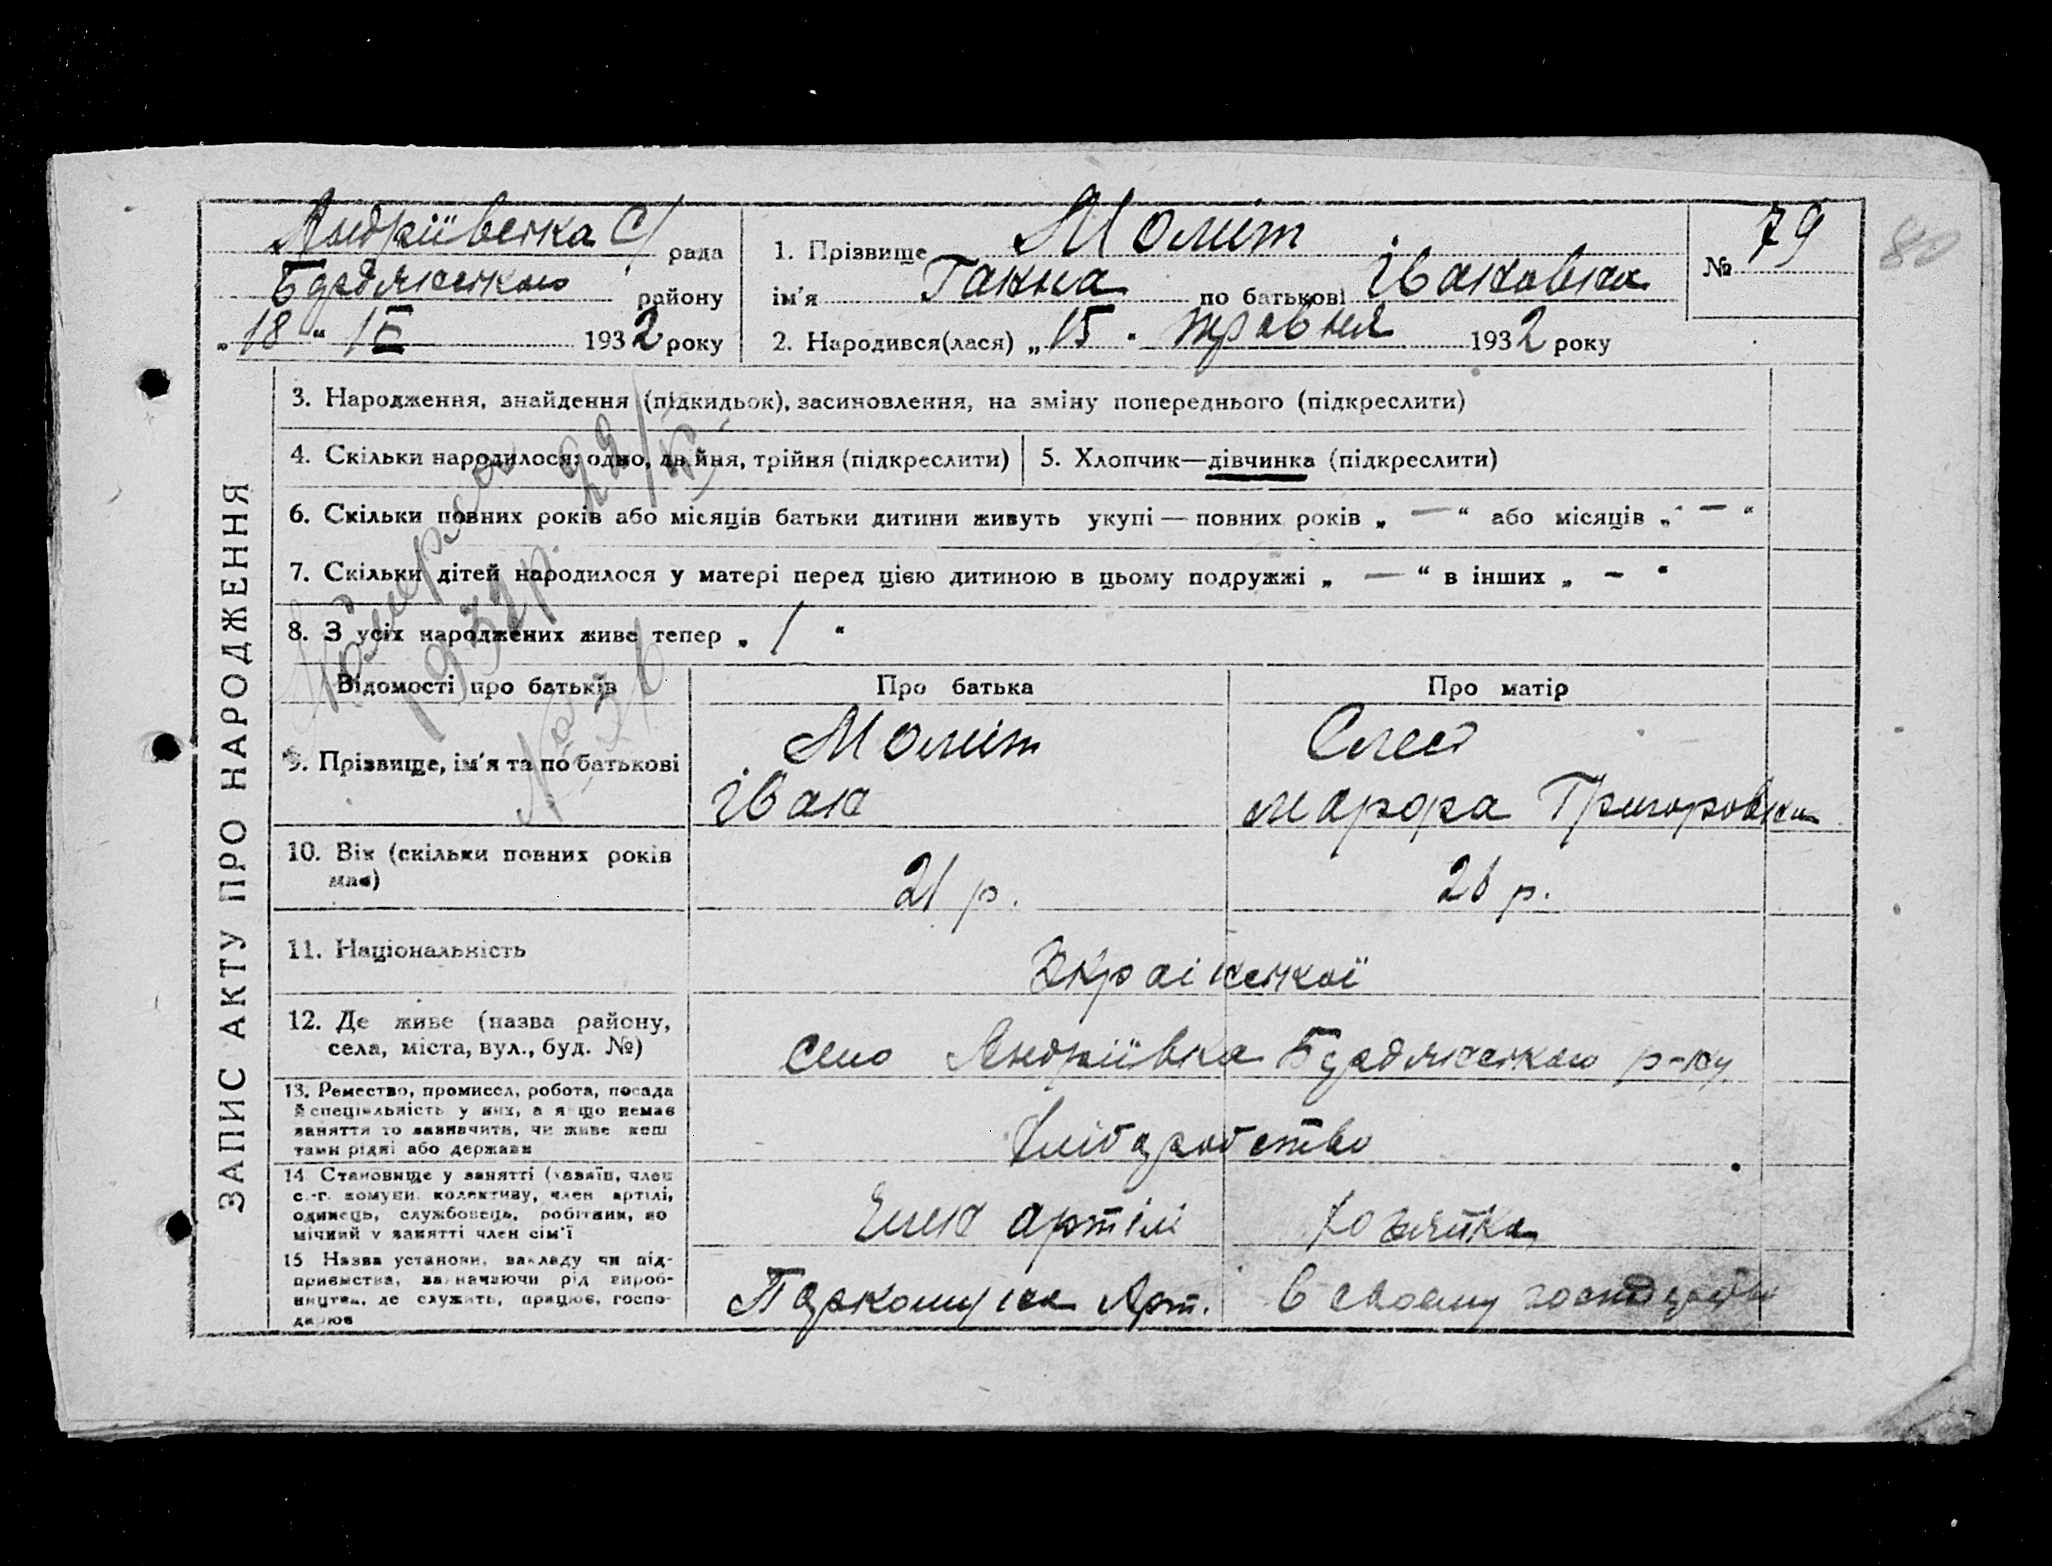 Андріївська С/ рада
Бердянського району
„18“ ІХ 1932 року
1. Прізвище Моліт
ім'я Ганна по батькові Івановна
2. Народився(лася) „15“ травня 1932 року
№ 79
80
ЗАПИС АКТУ ПРО НАРОДЖЕННЯ
3. Народження, знайдення (підкидьок), засиновлення, на зміну попереднього (підкреслити)
4. Скільки народилося: одно, двійня, трійня (підкреслити)
5. Хлопчик—дівчинка (підкреслити)
6. Скільки повних років або місяців батьки дитини живуть укупі — повних років „ — “ або місяців „ — “
7. Скільки дітей народилося у матері перед цією дитиною в цьому подружжі „ — “ в інших „ — “
8. З усіх народжених живе тепер „ 1 “
Померла
1932 р.
№ 36
Відомості про батьків
Про батька
Про матір
9. Прізвище, ім'я та по батькові
Моліт
Іван
марфа Григоровна
10. Вік (скільки повних років
має)
21 р.
26 р.
11. Національність
Української
12. Де живе (назва району,
села, міста, вул., буд. №)
село Андріївка Бердянського р-ну
13. Ремество, промисел, робота, посада
й спеціяльність у них, а якщо немає
заняття то зазначити, чи живе кош
тами рідні або держави
Хліборобство
14 Становище у занятті (хазяїн, член
с.-г. комуни, колективу, член артілі,
одинець, службовець, робітник, по
мічний у занятті член сім'ї
Член артілі
Хозяйка
15 Назва установи, закладу чи під-
приємства, зазначаючи рід вироб-
ництва, де служить, працює, госпо-
дарює
Арт.
в своему господарстві